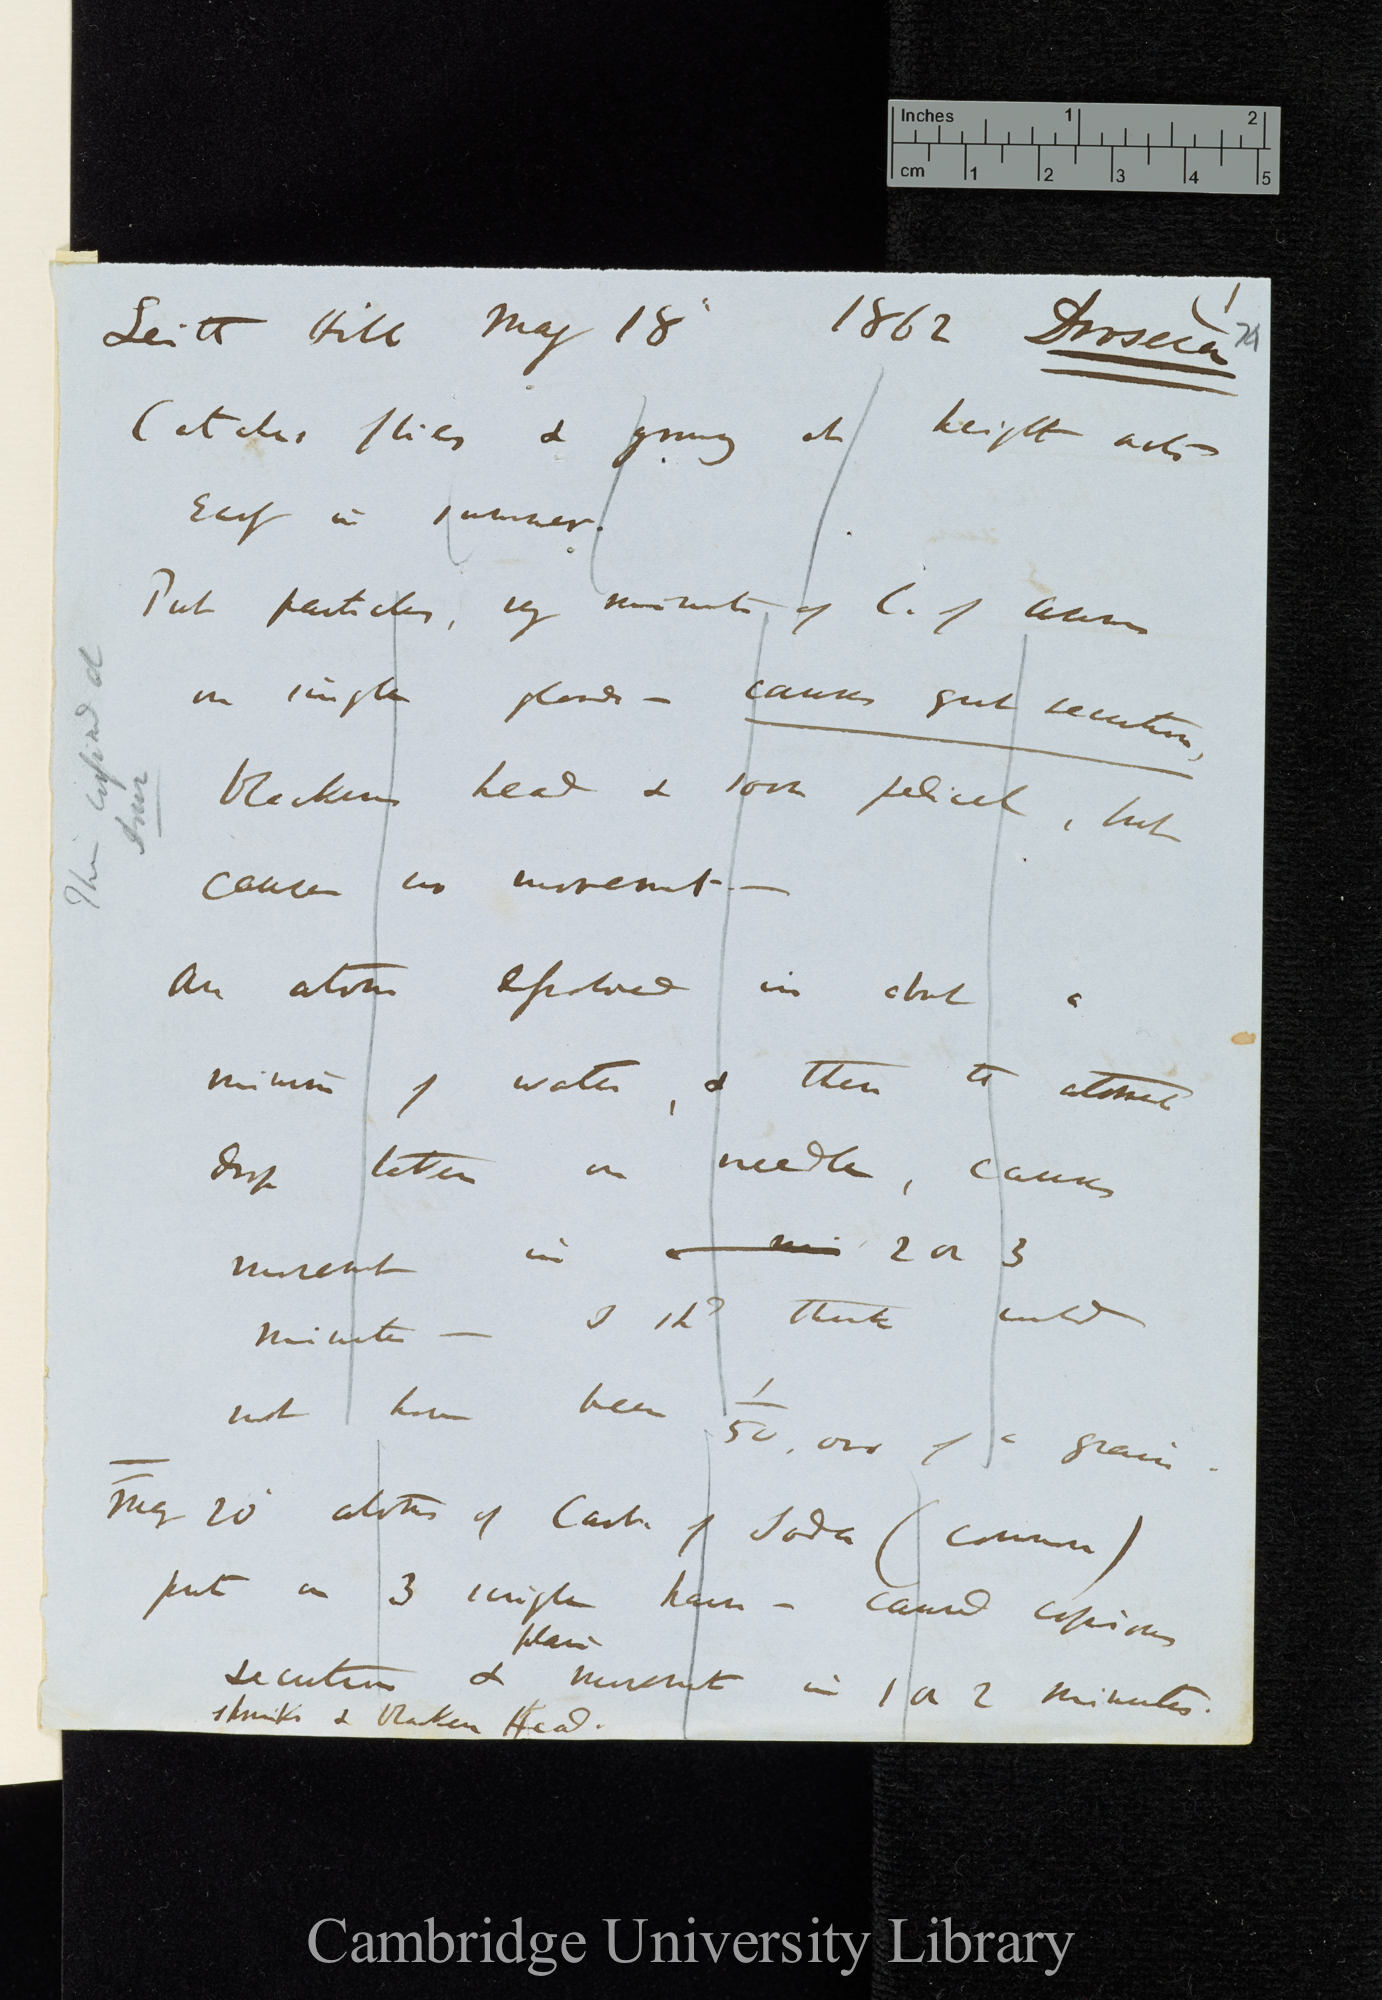 Inches 1 2
cm 1 2 3 4 5
(1
Leith Hill May 18' 1862 Drosera 74
Catches flies & at height acts
Early in summer.
Put particles, say minute of C. of Amm
on single glands — causes great secretion,
blackens head & soon pedicel, but
causes no movement —
An atom dissolved in about a
minim of water, & then to atomed
drop taken on needle, causes
movement in 2 or 3
minutes — I shd think could
not have been 1/50,000 of a grain.
May 20' atoms of Carb. of Soda (common)
put on 3 single hairs — caused copious
plain
secretion & movement in 1 or 2 minutes.
shrinks & blacken Head.
This copied at
Down
Cambridge University Library